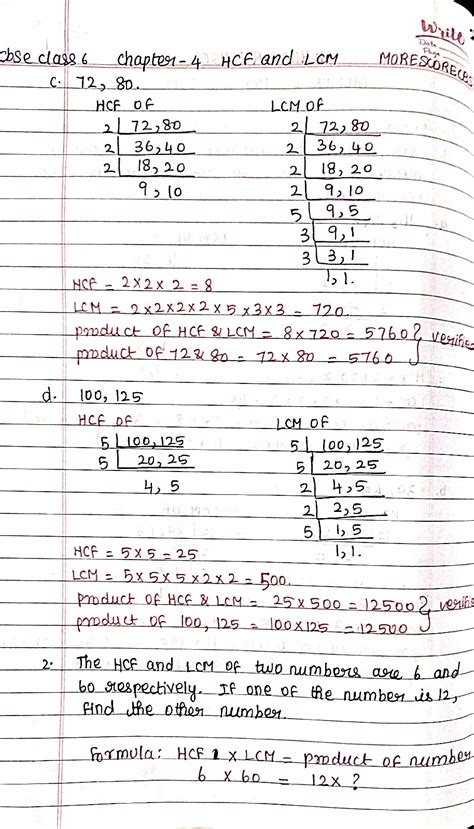 Write
Date
Page
cbse class 6 chapter-4 HCF and LCM MORESCORECBS
c. 72, 80.
HCF OF LCM OF
2 72, 80 2 72, 80
2 36, 40 2 36, 40
2 18, 20 2 18, 20
9, 10 2 9, 10
5 9, 5
3 9, 1
3 3, 1
1, 1.
HCF = 2×2×2 = 8
LCM = 2×2×2×2×5×3×3 = 720.
product OF HCF & LCM = 8×720 = 5760 } verified
product of 72 & 80 = 72 × 80 = 5760
d. 100, 125
HCF OF LCM OF
5 100, 125 5 100, 125
5 20, 25 5 20, 25
4, 5 2 4, 5
2 2, 5
5 1, 5
1, 1.
HCF = 5×5 = 25
LCM = 5×5×5×2×2 = 500.
product OF HCF & LCM = 25×500 = 12500 } verifie
product of 100, 125 = 100×125 = 12500
2. The HCF and LCM of two numbers are 6 and
60 respectively. If one of the number is 12,
find the other number.
Formula: HCF × LCM = product of number
6 × 60 = 12 × ?